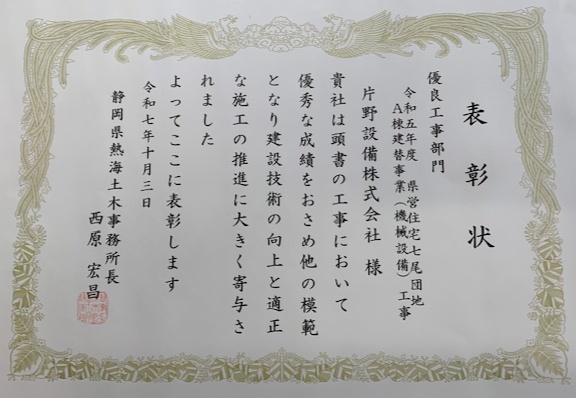 表彰状
優良工事部門
令和五年度 県営住宅七尾団地
A棟建替事業(機械設備)工事
片野設備株式会社 様
貴社は頭書の工事において
優秀な成績をおさめ他の模範
となり建設技術の向上と適正
な施工の推進に大きく寄与さ
れました
よってここに表彰します
令和七年十月三日
静岡県熱海土木事務所長
西原 宏昌